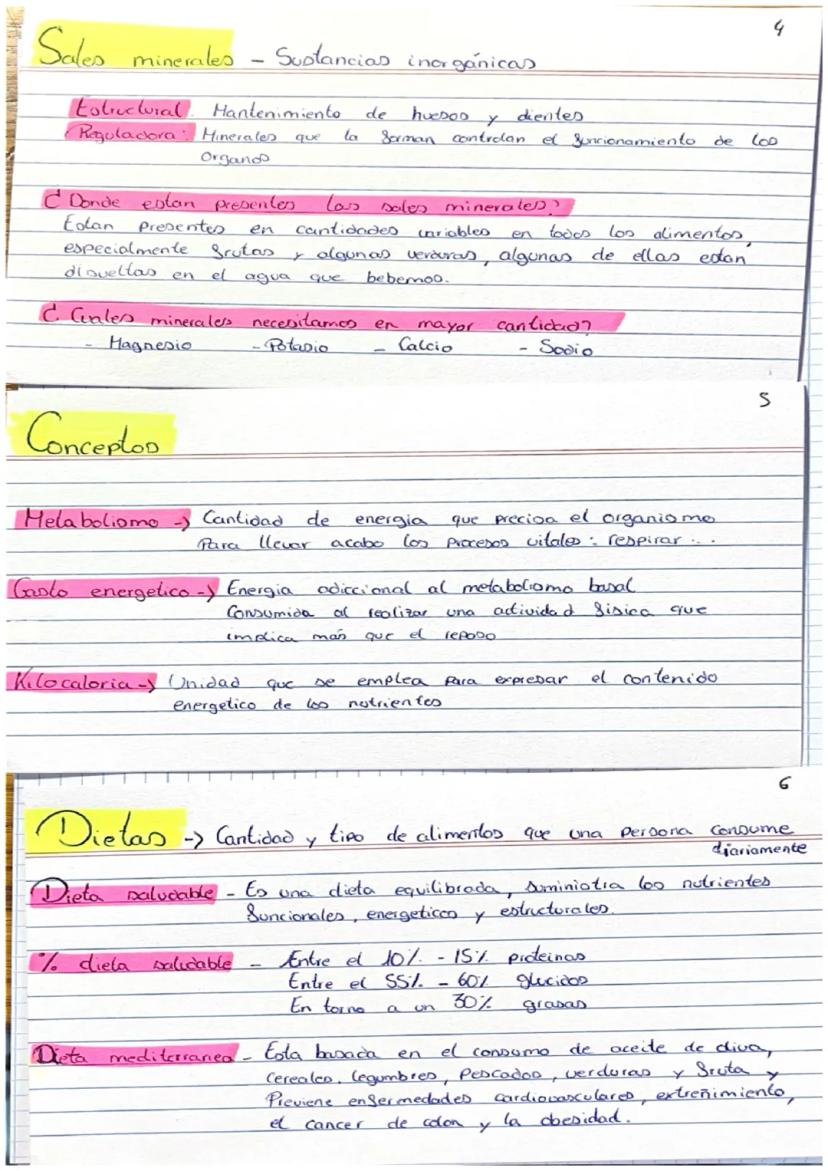 4
Sales minerales - Sustancias inorgánicas
Estructural. Mantenimiento de huesos y dientes
Reguladora: Minerales que la forman controlan el funcionamiento de los
organos
¿Donde estan presentes las sales minerales?
Estan presentes en cantidades variables en todos los alimentos,
especialmente frutas y algunas verduras, algunas de ellas estan
disueltas en el agua que bebemos.
¿Cuales minerales necesitamos en mayor cantidad?
- Magnesio - Potasio - Calcio - Sodio
5
Conceptos
Metabolismo -> Cantidad de energia que precisa el organismo
Para llevar acabo los procesos vitales: respirar...
Gasto energetico -> Energia adiccional al metabolismo basal
Consumida al realizar una actividad fisica que
implica más que el reposo
Kilocaloria -> Unidad que se emplea para expresar el contenido
energetico de los nutrientes
6
Dietas -> Cantidad y tipo de alimentos que una persona consume
diariamente
Dieta saludable - Es una dieta equilibrada, suministra los nutrientes
funcionales, energeticos y estructurales.
% dieta saludable - Entre el 10% - 15% proteinas
Entre el 55% - 60% glucidos
En torno a un 30% grasas
Dieta mediterranea - Esta basada en el consumo de aceite de oliva,
cereales, legumbres, pescados, verduras y fruta y
Previene enfermedades cardiovasculares, extreñimiento,
el cancer de colon y la obesidad.